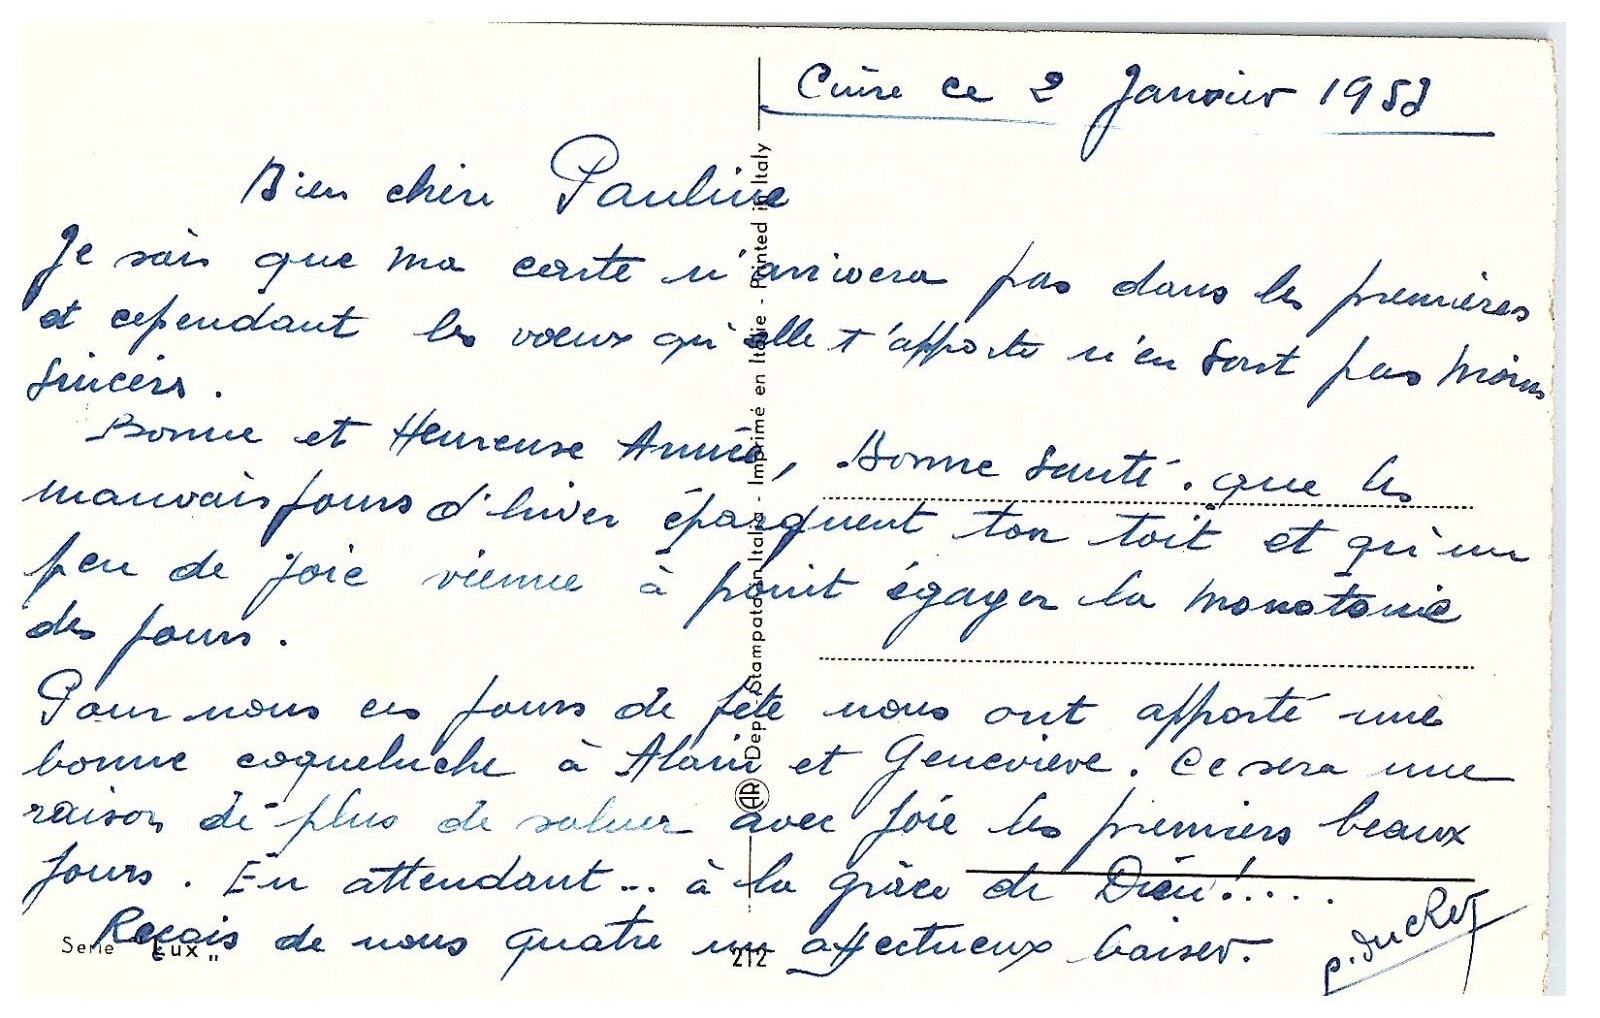 Cuire ce 2 Janvier 1953
Bien chère Pauline
Je sais que ma carte n'arrivera pas dans les premières
et cependant les voeux qu'elle t'apporte n'en sont pas moins
sincères.
Bonne et Heureuse Année, Bonne Santé. que les
mauvais jours d'hiver épargnent ton toit et qu'un
peu de joie vienne à point égayer la monotonie
des jours.
Pour nous ces jours de fête nous ont apporté une
bonne coqueluche à Alain et Geneviève. Ce sera une
raison de plus de saluer avec joie les premiers beaux
jours. En attendant... à la grâce de Dieu!....
Reçois de nous quatre un affectueux baiser.
P. Duclot
Serie "Lux„
212
AR Dep. Stampata in Italia - Imprimé en Italie - Printed in Italy